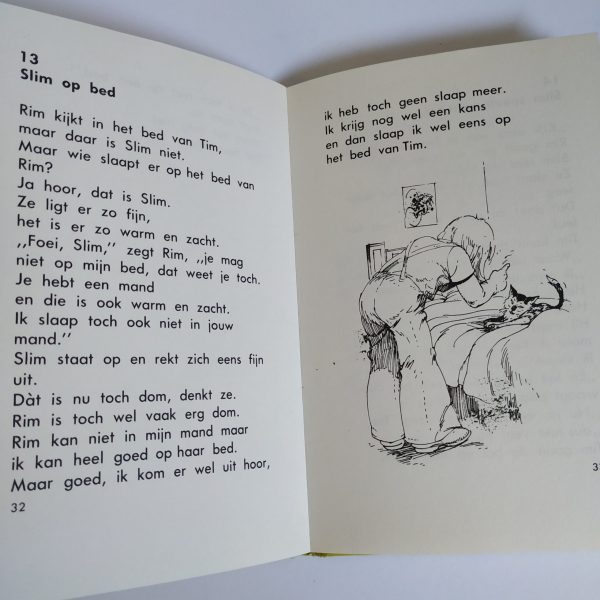 13
Slim op bed
Rim kijkt in het bed van Tim,
maar daar is Slim niet.
Maar wie slaapt er op het bed van
Rim?
Ja hoor, dat is Slim.
Ze ligt er zo fijn,
het is er zo warm en zacht.
,,Foei, Slim,'' zegt Rim, ,,je mag
niet op mijn bed, dat weet je toch.
Je hebt een mand
en die is ook warm en zacht.
Ik slaap toch ook niet in jouw
mand.''
Slim staat op en rekt zich eens fijn
uit.
Dàt is nu toch dom, denkt ze.
Rim is toch wel vaak erg dom.
Rim kan niet in mijn mand maar
ik kan heel goed op haar bed.
Maar goed, ik kom er wel uit hoor,
32
ik heb toch geen slaap meer.
Ik krijg nog wel een kans
en dan slaap ik wel eens op
het bed van Tim.